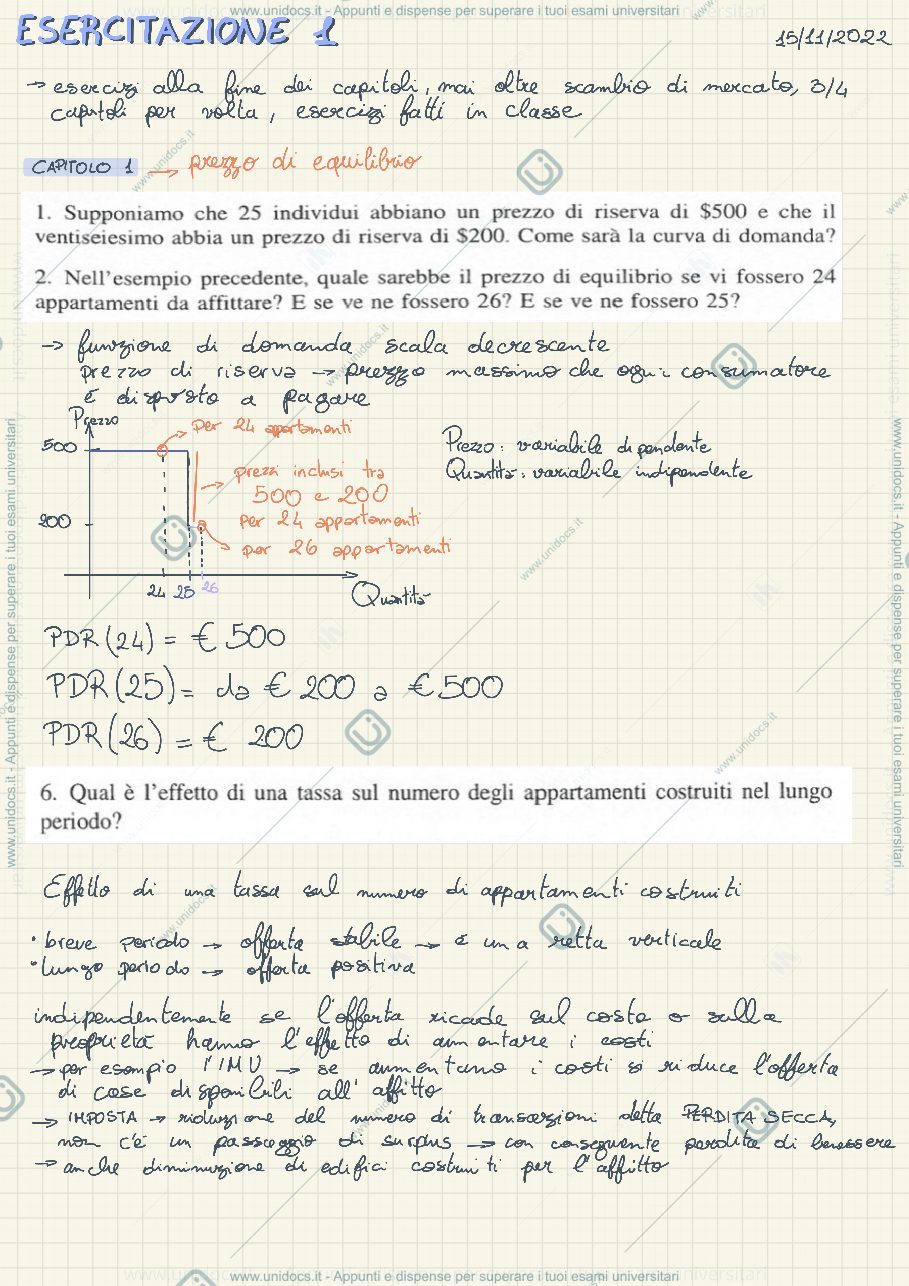 www.unidocs.it - Appunti e dispense per superare i tuoi esami universitari
ESERCITAZIONE 1
15/11/2022
→ esercizi alla fine dei capitoli, mai oltre scambio di mercato, 3/4
capitoli per volta, esercizi fatti in classe
CAPITOLO 1 → prezzo di equilibrio
1. Supponiamo che 25 individui abbiano un prezzo di riserva di $500 e che il
ventiseiesimo abbia un prezzo di riserva di $200. Come sarà la curva di domanda?
2. Nell'esempio precedente, quale sarebbe il prezzo di equilibrio se vi fossero 24
appartamenti da affittare? E se ve ne fossero 26? E se ve ne fossero 25?
→ funzione di domanda scala decrescente
prezzo di riserva → prezzo massimo che ogni consumatore
è disposto a pagare
Prezzo
500
200
per 24 appartamenti
prezzi inclusi tra
500 e 200
per 24 appartamenti
per 26 appartamenti
24 25 26
Quantità
Prezzo: variabile dipendente
Quantità: variabile indipendente
PDR(24) = € 500
PDR(25) = da € 200 a € 500
PDR(26) = € 200
6. Qual è l'effetto di una tassa sul numero degli appartamenti costruiti nel lungo
periodo?
Effetto di una tassa sul numero di appartamenti costruiti
• breve periodo → offerta stabile → è una retta verticale
• lungo periodo → offerta positiva
indipendentemente se l'offerta ricade sul costo o sulla
proprietà hanno l'effetto di aumentare i costi
→ per esempio l'IMU → se aumentano i costi si riduce l'offerta
di case disponibili all'affitto
→ IMPOSTA → riduzione del numero di transazioni detta PERDITA SECCA,
non c'è un passaggio di surplus → con conseguente perdita di benessere
→ anche diminuzione di edifici costruiti per l'affitto
www.unidocs.it - Appunti e dispense per superare i tuoi esami universitari